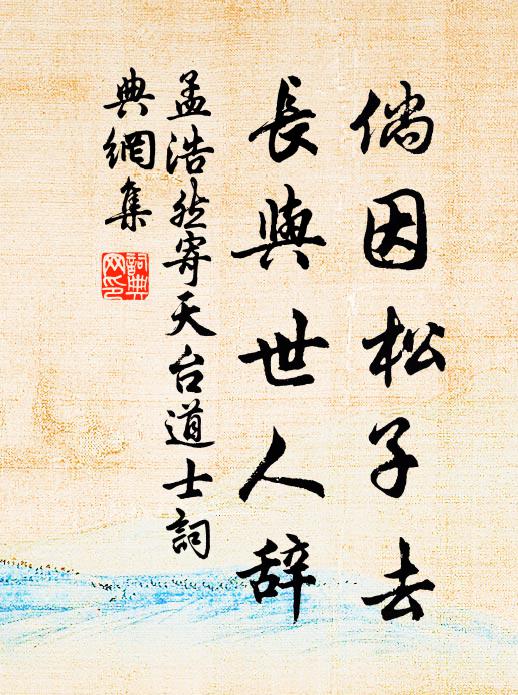 倘因松子去
長與世人辞
孟浩然寄天台道士詞
典網集
詞典
网印